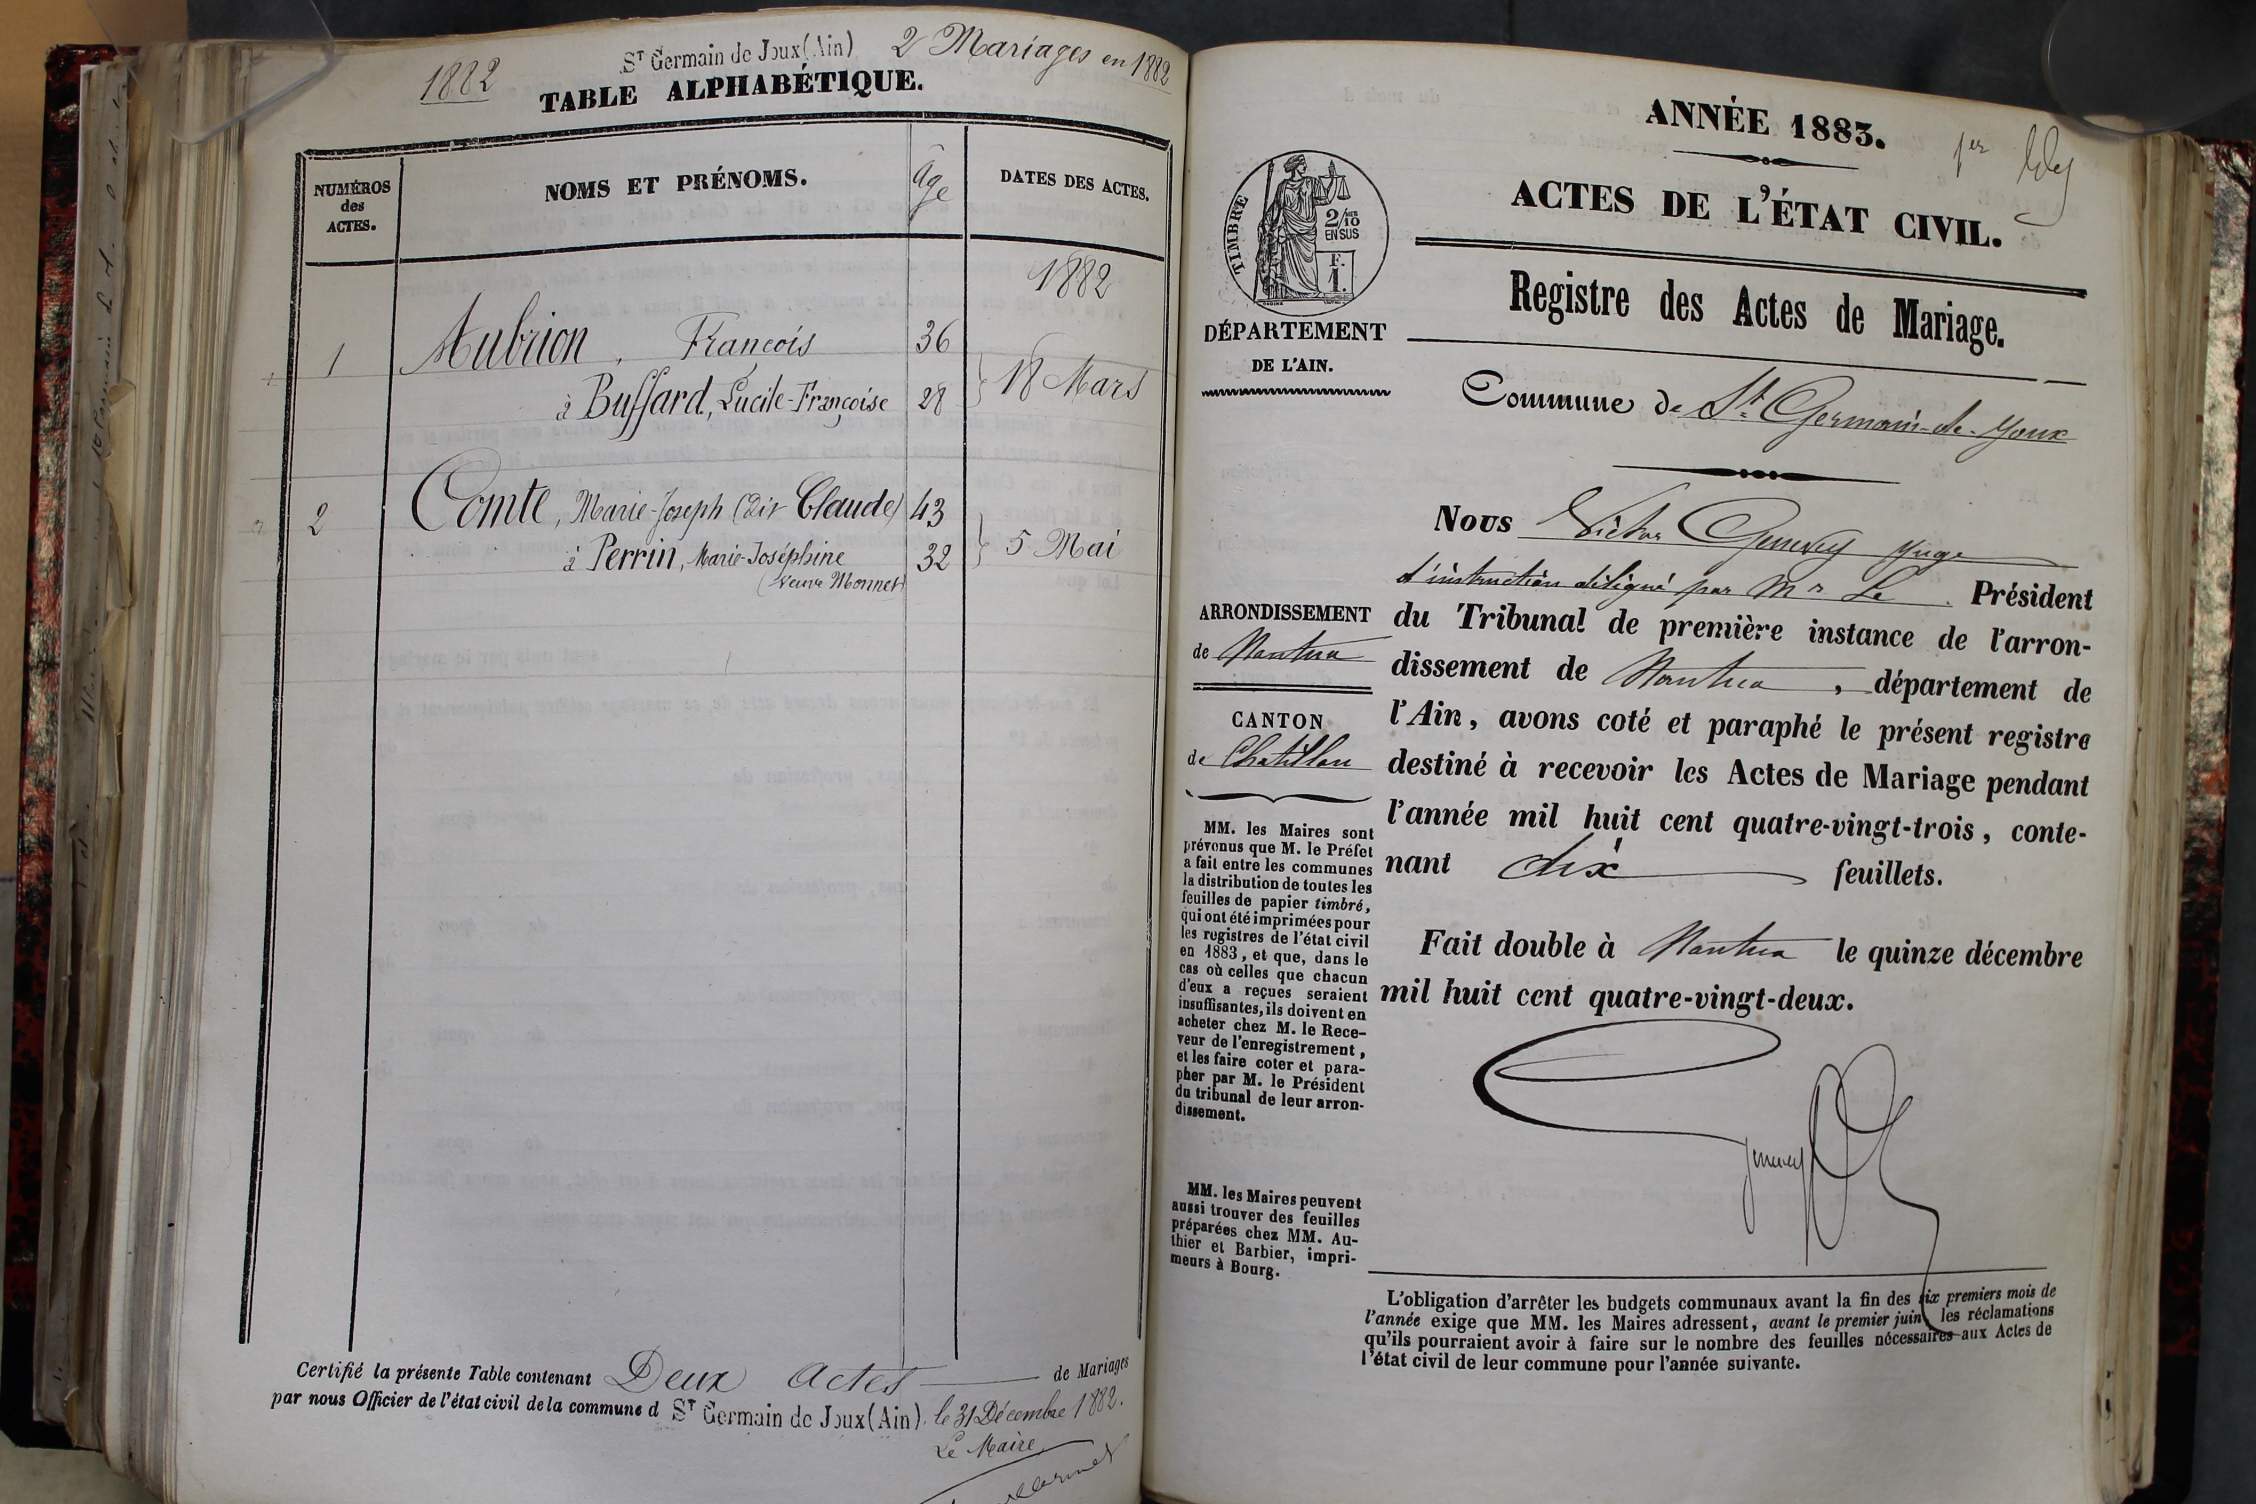 1882
St Germain de Joux (Ain) 2 Mariages en 1882
TABLE ALPHABÉTIQUE.
NUMÉROS
des
ACTES.
NOMS ET PRÉNOMS.
âge
DATES DES ACTES.
1882
1 Aubrion, François 36
à Buffard, Lucile-Françoise 28 } 18 Mars
2 Comte, Marie-Joseph (dit Claude) 43
à Perrin, Marie-Joséphine 32 } 5 Mai
(veuve Monnet)
Certifié la présente Table contenant Deux Actes de Mariages
par nous Officier de l'état civil de la commune d St Germain de Joux (Ain). le 31 Décembre 1882.
Le Maire
ANNÉE 1883.
1er
ACTES DE L'ÉTAT CIVIL.
TIMBRE
2/10
EN SUS
F.
1.
Registre des Actes de Mariage.
DÉPARTEMENT
DE L'AIN.
Commune de St Germain-de-Joux
Nous Victor Genevey Juge
d'instruction délégué par Mr Le Président
du Tribunal de première instance de l'arron-
dissement de Nantua, département de
l'Ain, avons coté et paraphé le présent registre
destiné à recevoir les Actes de Mariage pendant
l'année mil huit cent quatre-vingt-trois, conte-
nant dix feuillets.
Fait double à Nantua le quinze décembre
mil huit cent quatre-vingt-deux.
Genevey
ARRONDISSEMENT
de Nantua
CANTON
de Chatillon
MM. les Maires sont
prévenus que M. le Préfet
a fait entre les communes
la distribution de toutes les
feuilles de papier timbré,
qui ont été imprimées pour
les registres de l'état civil
en 1883, et que, dans le
cas où celles que chacun
d'eux a reçues seraient
insuffisantes, ils doivent en
acheter chez M. le Rece-
veur de l'enregistrement,
et les faire coter et para-
pher par M. le Président
du tribunal de leur arron-
dissement.
MM. les Maires peuvent
aussi trouver des feuilles
préparées chez MM. Au-
thier et Barbier, impri-
meurs à Bourg.
L'obligation d'arrêter les budgets communaux avant la fin des six premiers mois de
l'année exige que MM. les Maires adressent, avant le premier juin les réclamations
qu'ils pourraient avoir à faire sur le nombre des feuilles nécessaires aux Actes de
l'état civil de leur commune pour l'année suivante.